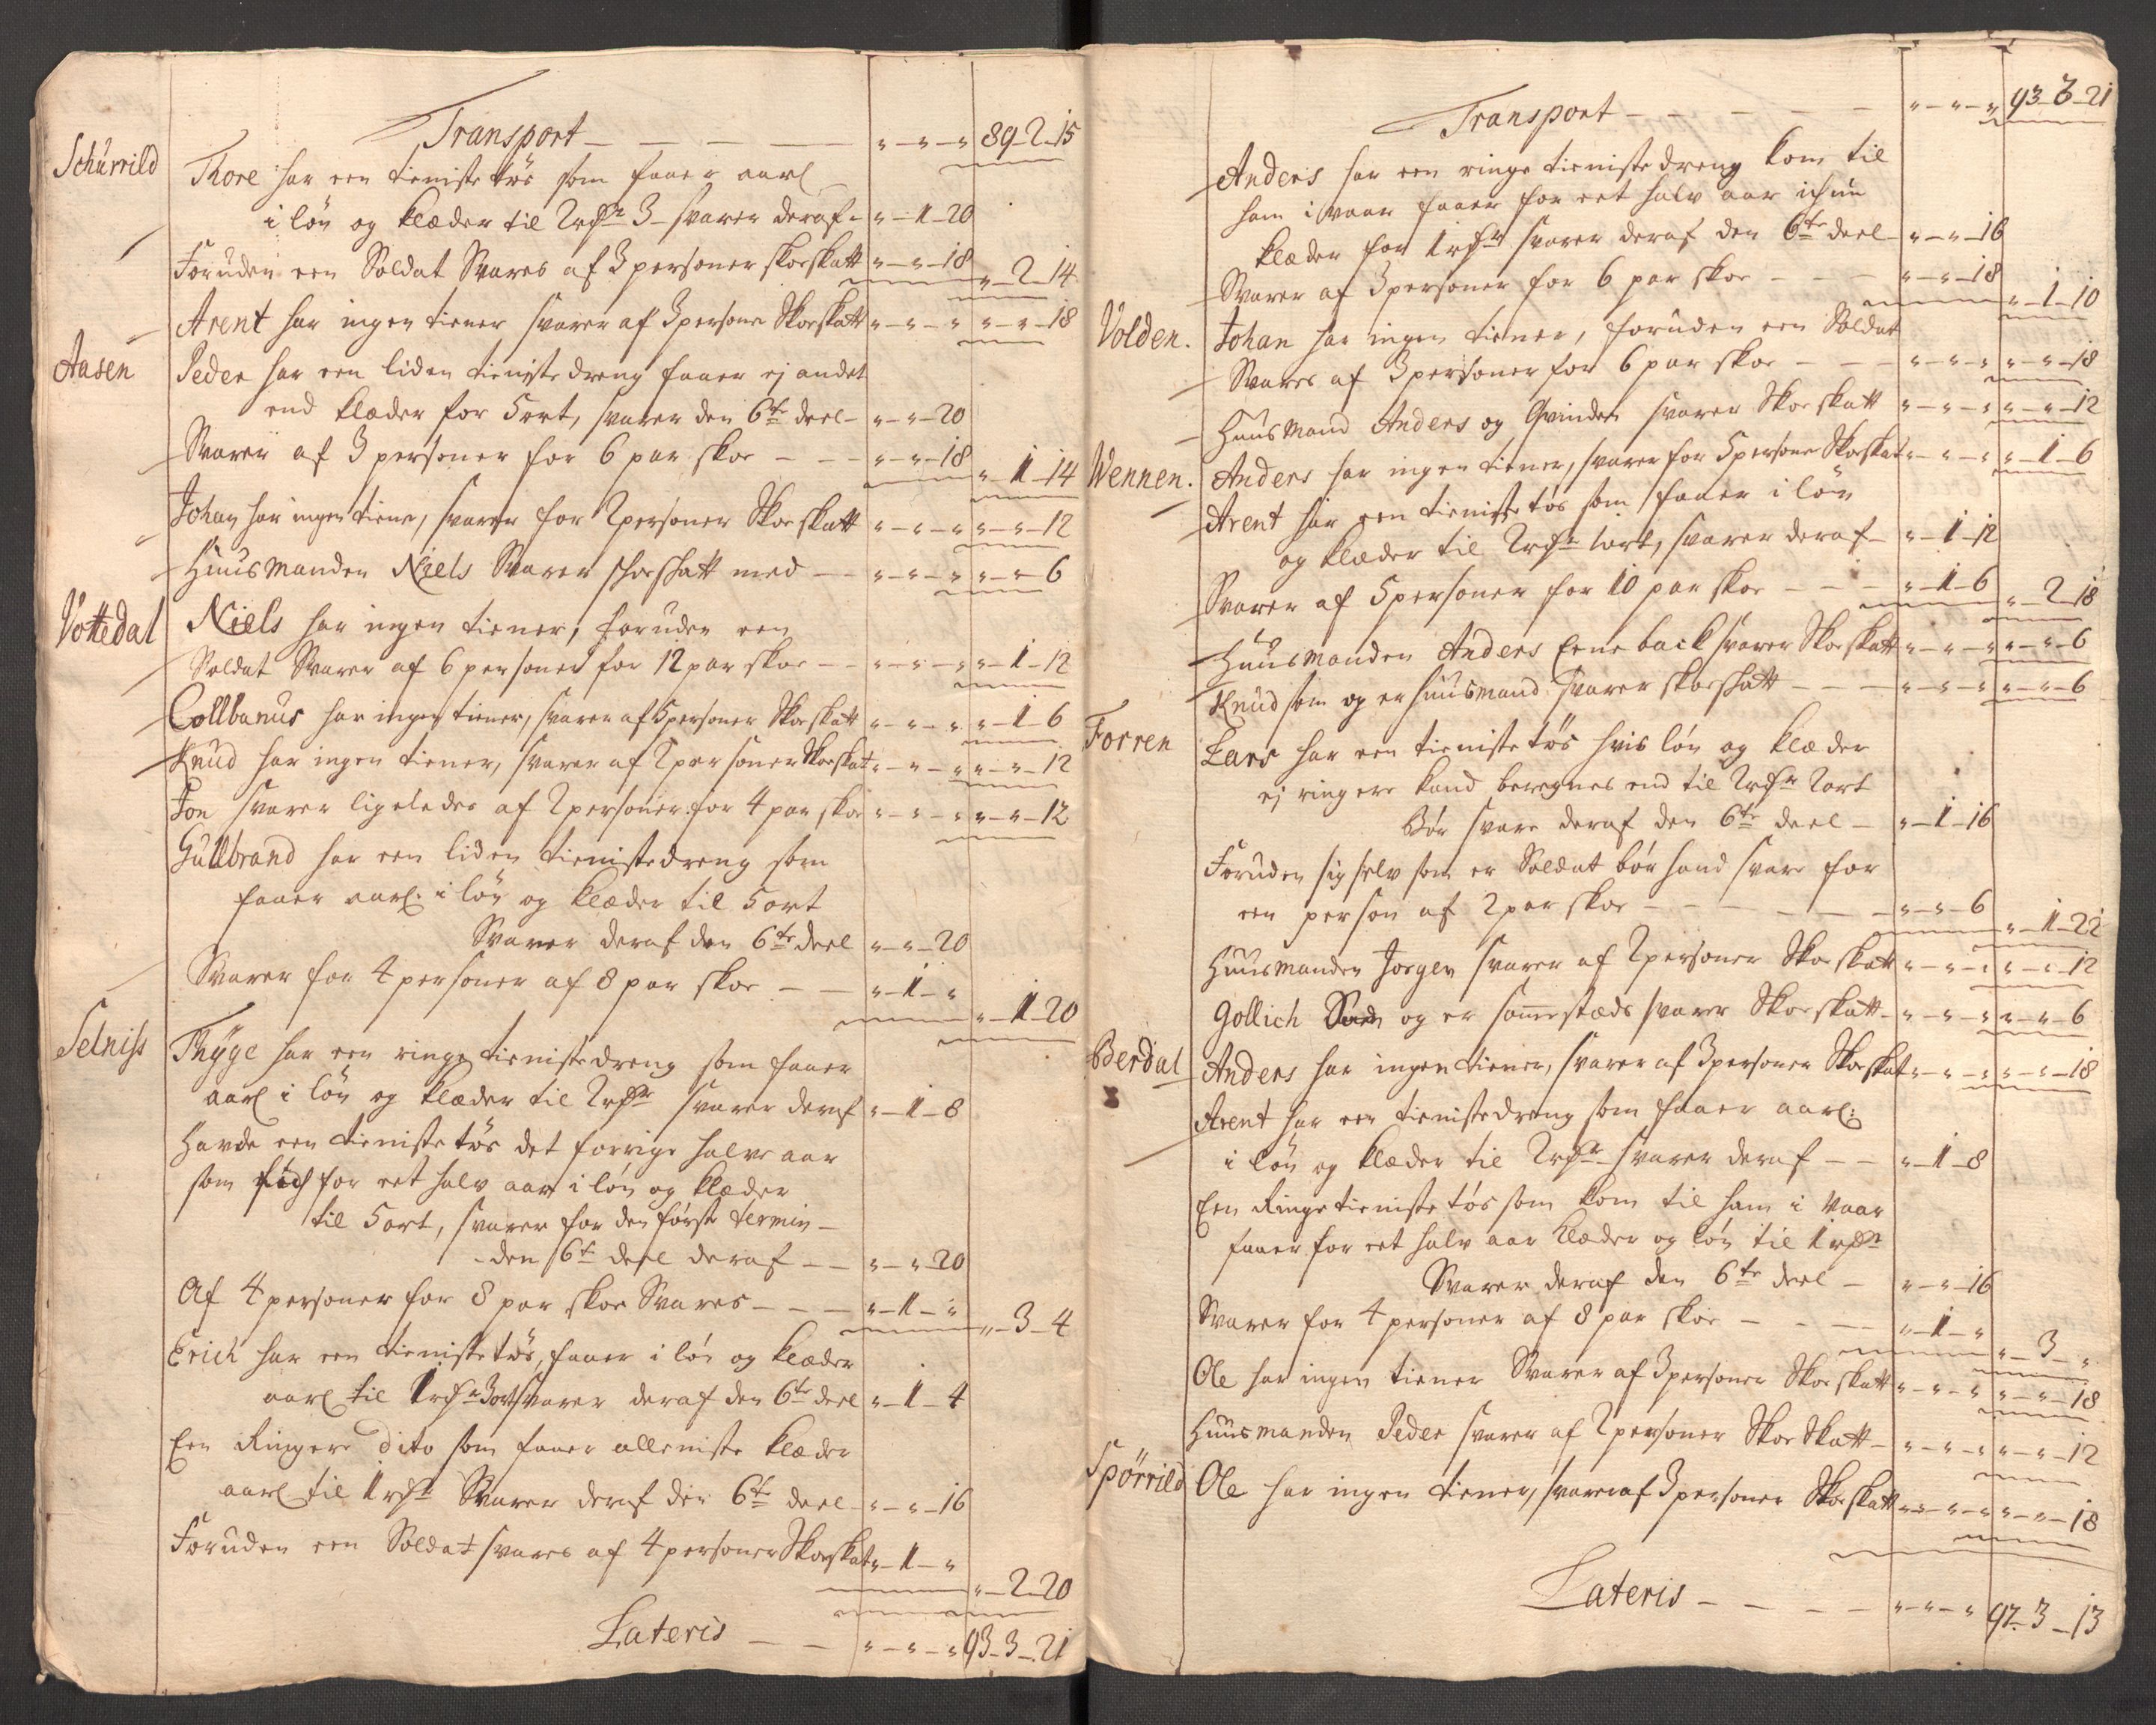 Transport — — — — " — " — " 89 — 2 — 15
Schürrild
Thore har een tieniste tös som faaer aarl
i løn og klæder til 2 rdr 3 — svarer deraf — " — 1 — 20
Foruden een Soldat Svares af 3 personer skoeskatt " — " — 18 " — 2 — 14
Arent har ingen tiener svarer af 3 persone Skoeskatt " — " — " " — " — 18
Aasen
Peder har een liden tieniste dreng faaer ej andet
end klæder for 5 ort, svarer den 6te deel — " — " — 20
Svarer af 3 personer for 6 par skoe — — " — " — 18 " — 1 — 14
Johan har ingen tiener, svarer for 2 personer Skoeskatt " — " — " " — " — 12
Huusmanden Niels Svarer skoeskatt med — " — " — " " — " — 6
Vottedal
Niels har ingen tiener, foruden een
Soldat Svarer af 6 personer for 12 par skoe — — " — " — " " — 1 — 12
Collbanus har ingen tiener, svarer af 5 personer Skoeskatt " — " — " " — 1 — 6
Knud har ingen tiener, svarer af 2 personer Skoeskat " — " — " " — " — 12
Jon svarer ligeledes af 2 personer for 4 par skoe " — " — " " — " — 12
Gullbrand har een liden tienistedreng som
faaer aarl: i løn og klæder til 5 ort
Svarer deraf den 6te deel " — " — 20
Svarer for 4 personer af 8 par skoe — — " — 1 — " " — 1 — 20
Selniss
Thyge har een ringe tienistedreng som faaer
aarl i løn og klæder til 2 rdr svarer deraf " — 1 — 8
Havde een tieniste tös det forrige halve aar
som fich for eet halv aar i løn og klæder
til 5 ort, svarer for den første termin —
den 6te deel deraf — — " — " — 20
Af 4 personer for 8 par skoe Svares — — — " — 1 — " " — 3 — 4
Erich har een tieniste tös, faaer i løn og klæder
aarl til 1 rdr 3 ort svarer deraf den 6te deel " — 1 — 4
Een Ringere Dito som faaer alleniste klæder
aarl til 1 rdr Svarer deraf den 6te deel — " — " — 16
Foruden een Soldat svares af 4 personer Skoeskat " — 1 — " " — 2 — 20
Lateris — — " — " — " 93 — 3 — 21
Transport — — — — — " — " — " 93 — 3 — 21
Anders har een ringe tieniste dreng kom til
ham i vaar faaer for eet halv aar ichun
klæder for 1 rdr svarer deraf den 6te deel — " — " — 16
Svarer af 3 personer for 6 par skoe — — — " — " — 18 " — 1 — 10
Volden.
Johan har ingen tiener, foruden een Soldat
Svares af 3 personer for 6 par skoe — — " — " — " " — " — 18
Huusmand Anders og Qvinden svarer Skoeskatt " — " — " " — " — 12
Wennen.
Anders har ingen tiener, svarer for 5 persone Skoeskat " — " — " " — 1 — 6
Arent har een tieniste tös som faaer i løn
og klæder til 2 rdr 1 ort, svarer deraf — " — 1 — 12
Svarer af 5 personer for 10 par skoe — — — " — 1 — 6 " — 2 — 18
Huusmanden Anders Enebach svarer Skoeskatt " — " — " " — " — 6
Knud som og er huusmand svarer skoeskatt — — — " — " — " " — " — 6
Forren
Lars har een tieniste tös hvis løn og klæder
ej ringere kand beregnes end til 2 rdr 2 ort
Bør svare deraf den 6te deel — " — 1 — 16
Foruden sig selv som er Soldat bør hand svare for
een person af 2 par skoe — — — — — — " — " — 6 " — 1 — 22
Huusmanden Jorgen svarer af 2 personer Skoeskatt " — " — " " — " — 12
Gollich og er sammestæds svarer Skoeskatt — " — " — " " — " — 6
Berdal
Anders har ingen tiener, svarer af 3 personer Skoeskat " — " — " " — " — 18
Arent har een tienistedreng som faaer aarl:
i løn og klæder til 2 rdr svarer deraf — — " — 1 — 8
Een Ringe tieniste tös som kom til ham i Vaar
faaer for eet halv aar klæder og løn til 1 rdr
Svarer deraf den 6te deel — " — " — 16
Svarer for 4 personer af 8 par skoe — — — " — 1 — " " — 3 — "
Ole har ingen tiener Svarer af 3 personer Skoeskatt " — " — " " — " — 18
Huusmanden Peder svarer af 2 personer Skoe Skatt — " — " — " " — " — 12
Spørrild
Ole har ingen tiener, svarer af 3 personer Skoeskatt " — " — " " — " — 18
Lateris — — — — " — " — " 97 — 3 — 13